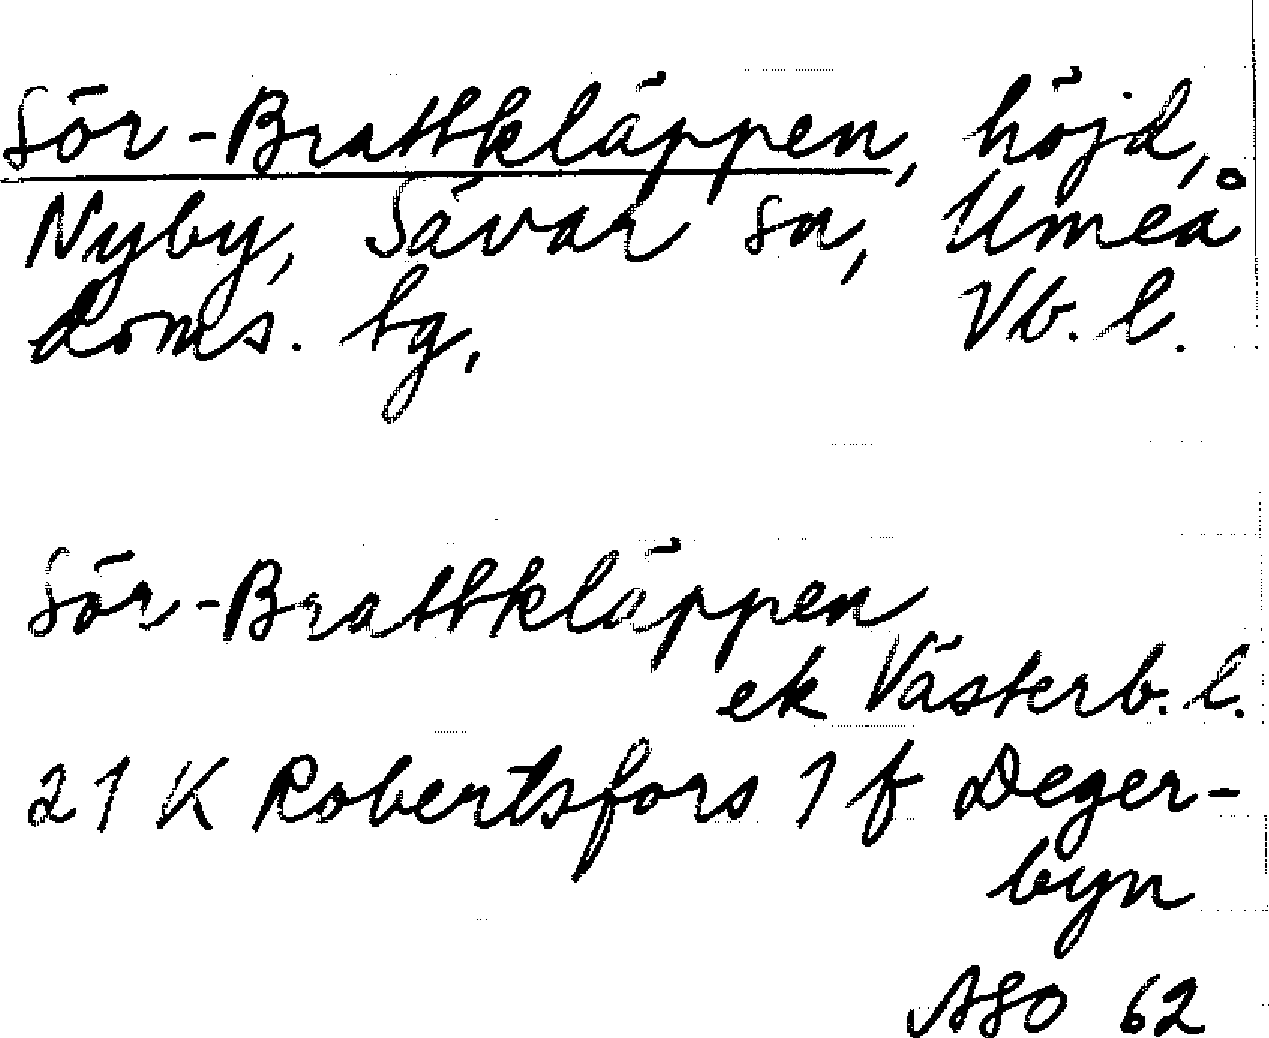 Sör-Brattkläppen, höjd,
Nyby, Sävar sn, Umeå
doms. tg, Vb. l.
Sör-Brattkläppen
ek Västerb. l.
21 K Robertsfors 1 f Deger-
byn
ASO 62